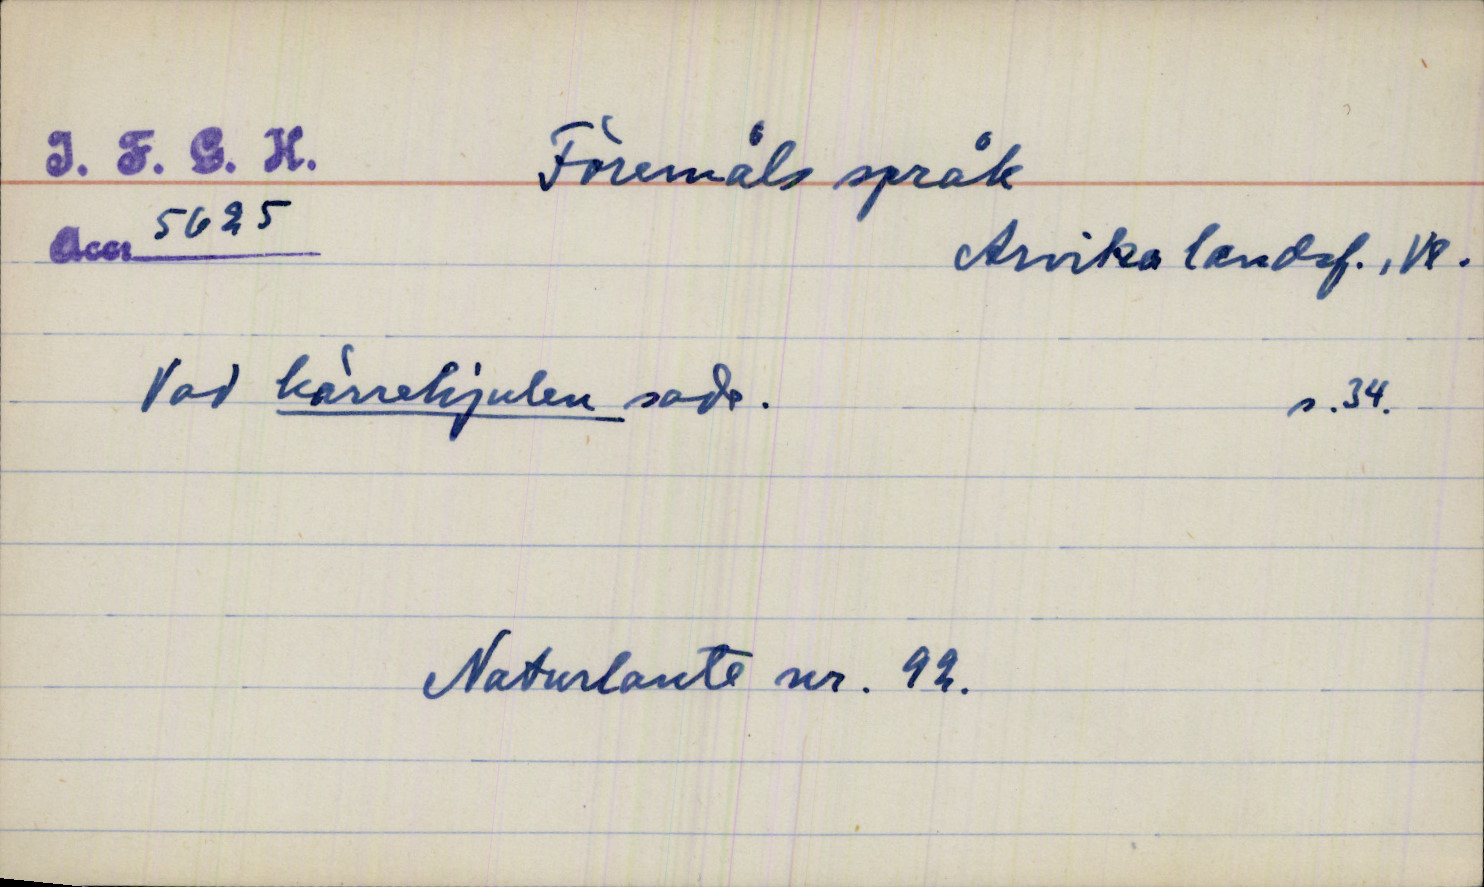 I. F. G. H.
Föremåls språk
Acc. 5625
Arvika landsf., Vl.
Vad kärrehjulen sade.
s. 34.
Naturlaute nr. 92.